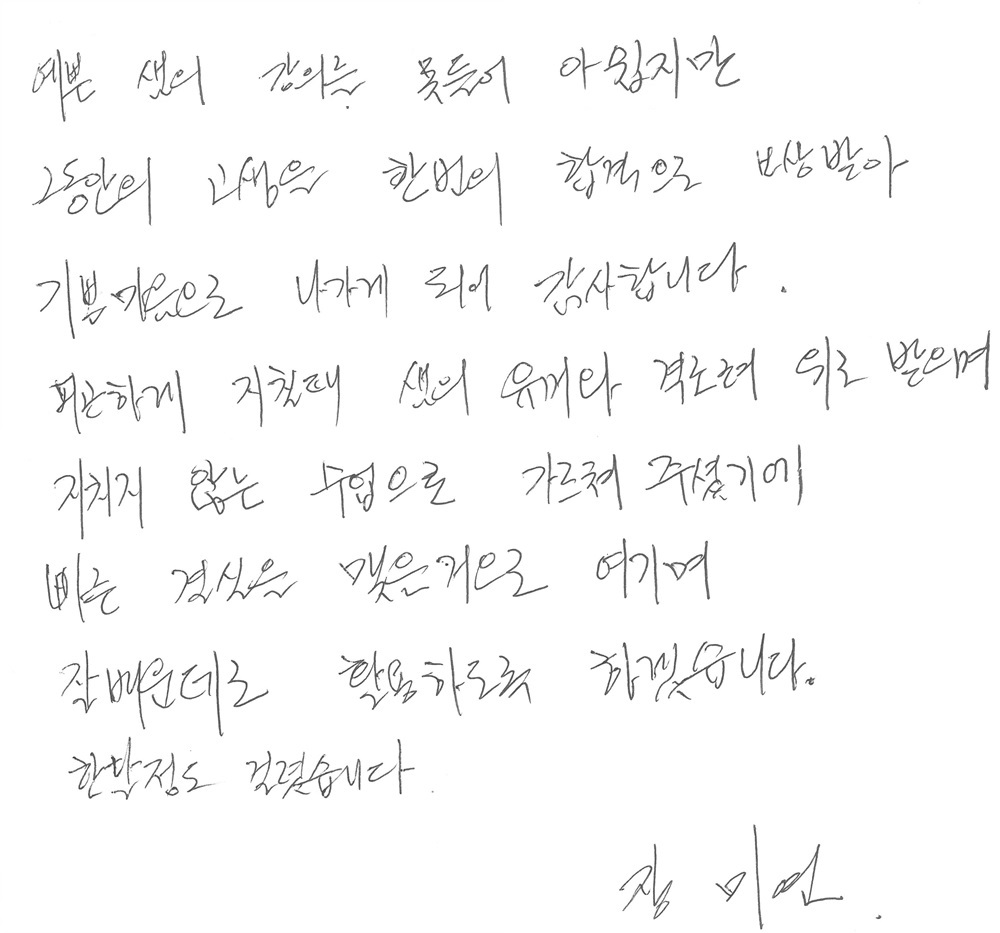 예쁜 샘의 강의를 못들어 아쉽지만
그동안의 고생을 한번의 합격으로 보상받아
기쁜마음으로 나가게 되어 감사합니다.
피곤하게 지칠때 샘의 유께와 격로려 위로 받으며
지치지 않는 수업으로 가르쳐 주셨기에
빠른 결실을 맺은거으로 여기며
잘배운데로 활용하도록 하겠습니다.
한달정도 걸렸습니다.
장 미연.